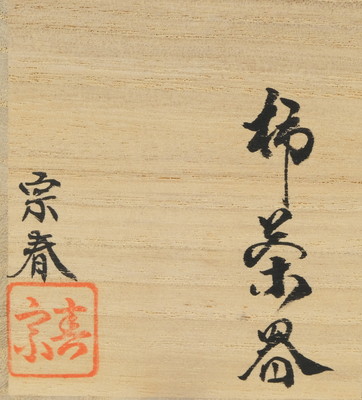 柿茶器
宗春
宗春